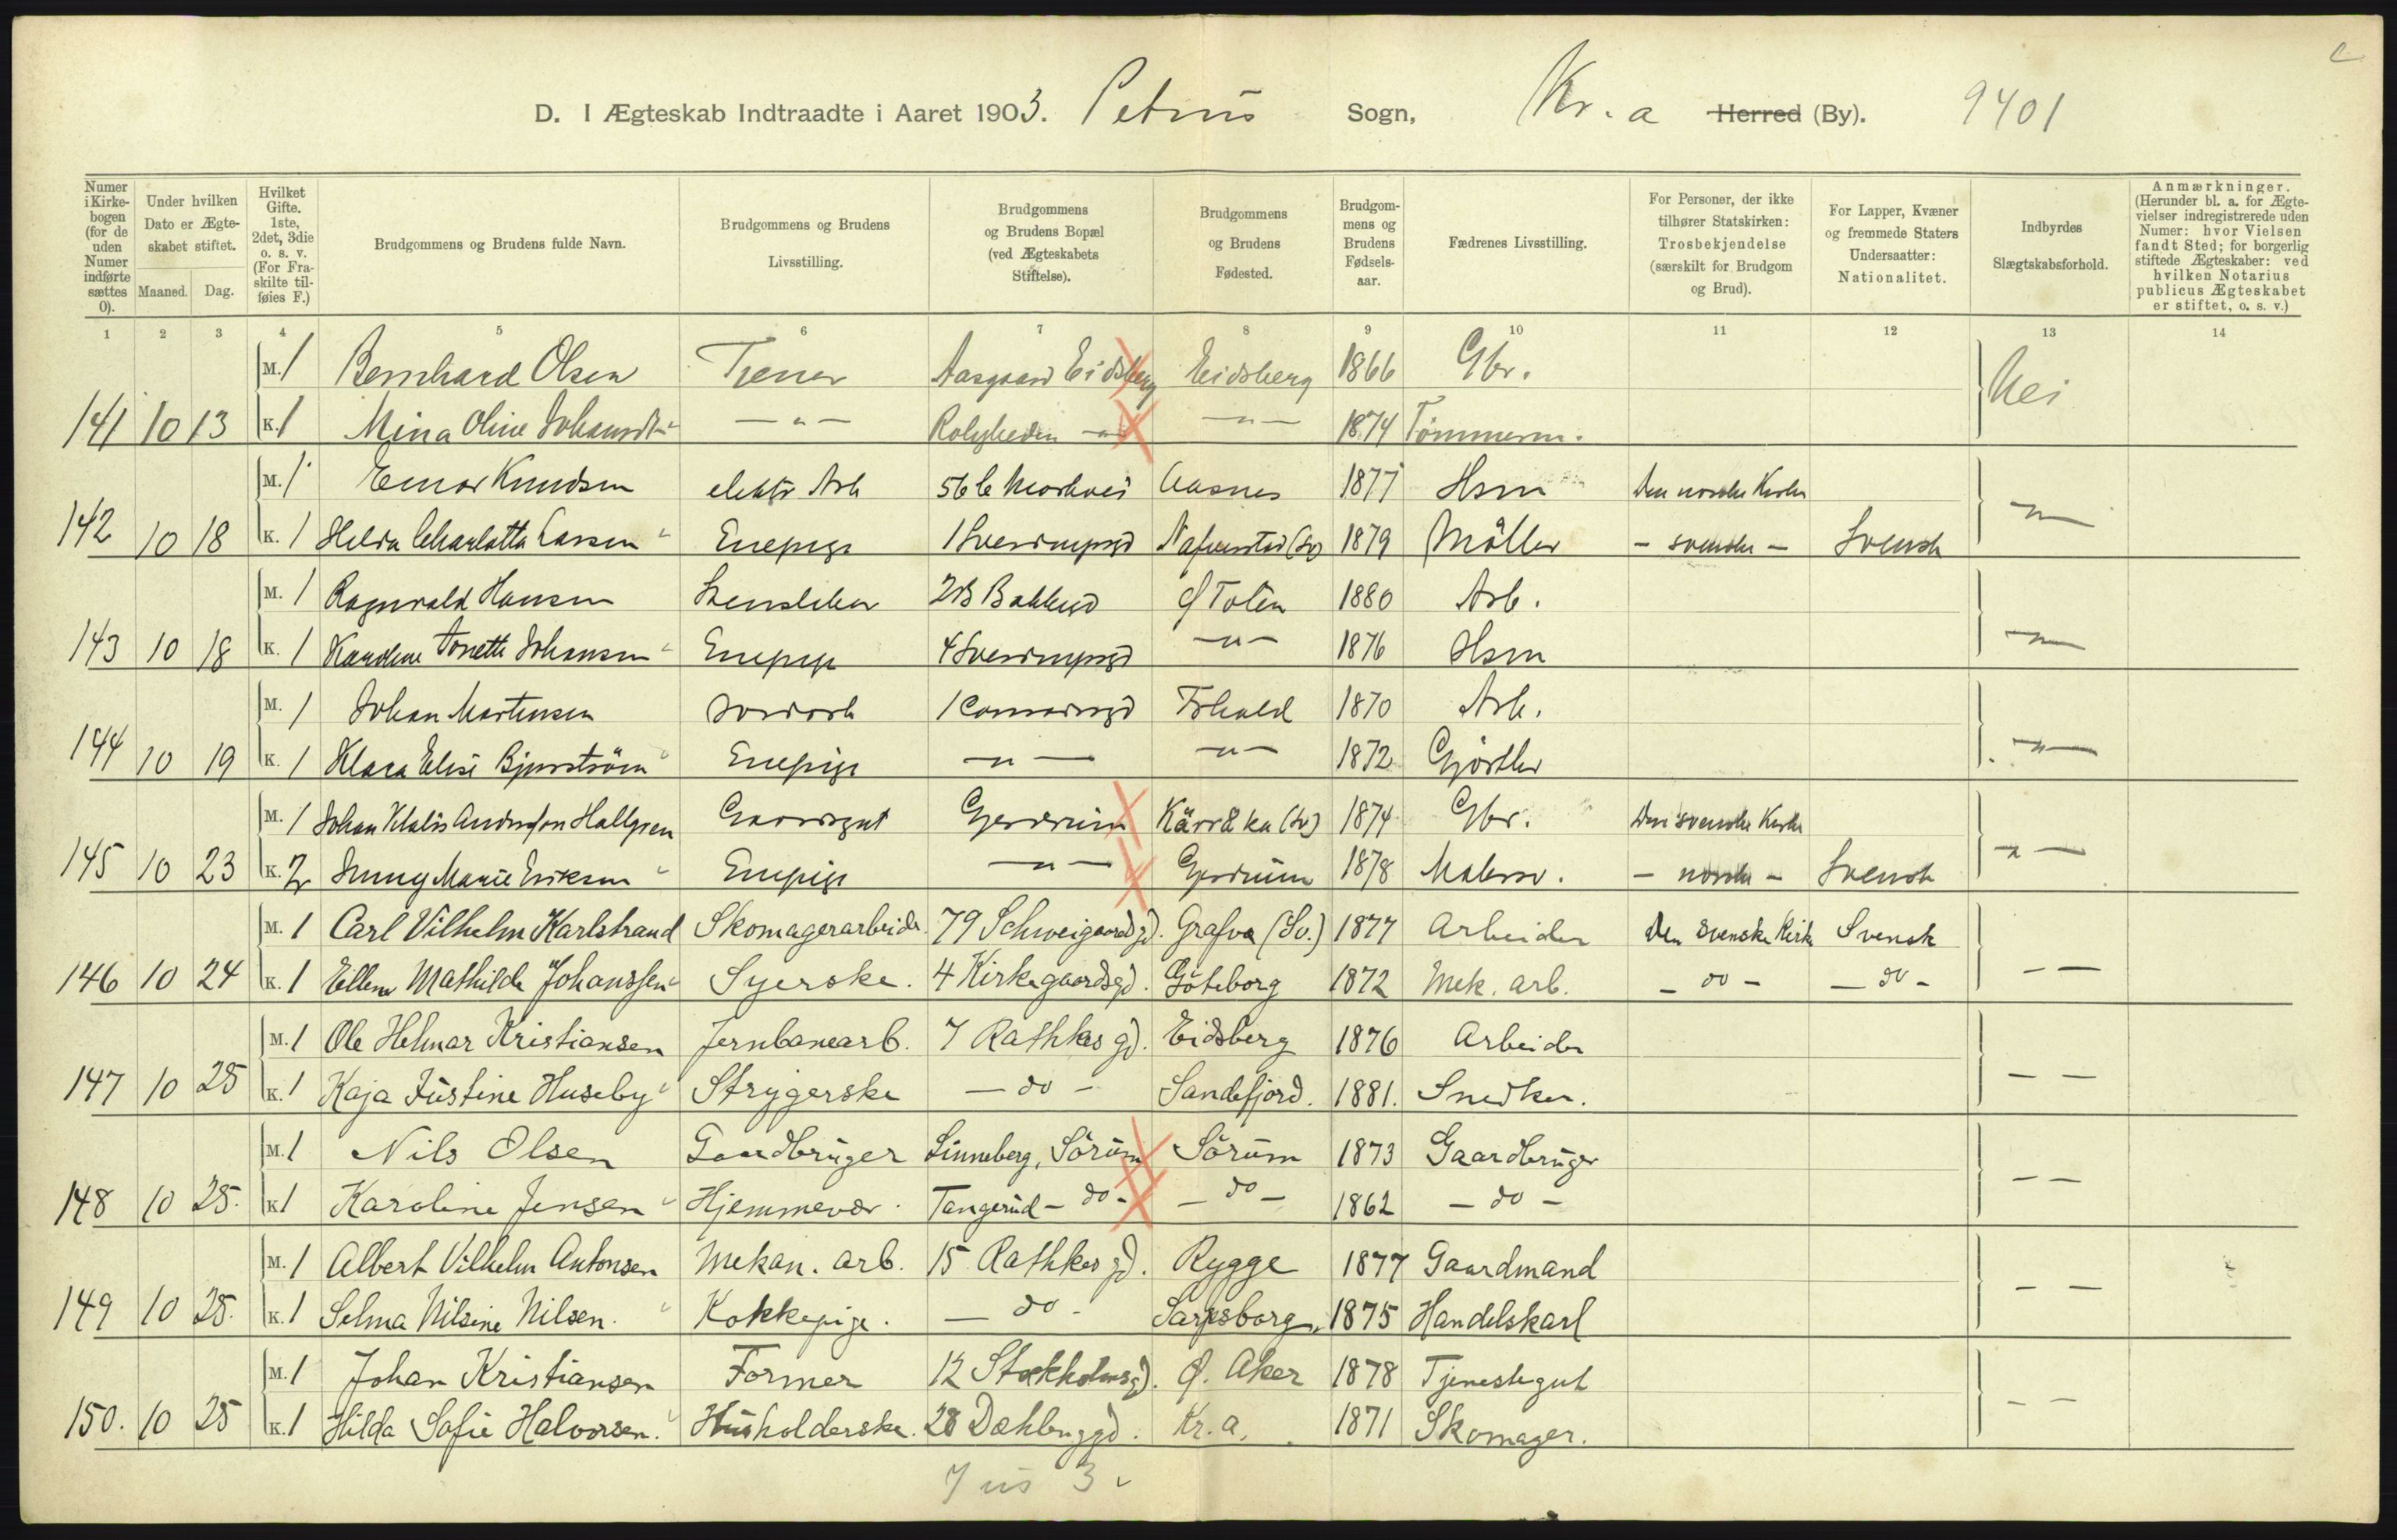 D. I Ægteskab Indtraadte i Aaret 1903. Petrus Sogn, Kr.a Herred (By). 9401
Numer i Kirkebogen (for de uden Numer indførte sættes 0). | Under hvilken Dato er Ægteskabet stiftet. Maaned. Dag. | Hvilket Gifte. 1ste, 2det, 3die o. s. v. (For Fraskilte tilføies F.) | Brudgommens og Brudens fulde Navn. | Brudgommens og Brudens Livsstilling. | Brudgommens og Brudens Bopæl (ved Ægteskabets Stiftelse). | Brudgommens og Brudens Fødested. | Brudgommens og Brudens Fødselsaar. | Fædrenes Livsstilling. | For Personer, der ikke tilhører Statskirken: Trosbekjendelse (særskilt for Brudgom og Brud). | For Lapper, Kvæner og fremmede Staters Undersaatter: Nationalitet. | Indbyrdes Slægtskabsforhold. | Anmærkninger. (Herunder bl. a. for Ægtevielser indregistrerede uden Numer: hvor Vielsen fandt Sted; for borgerlig stiftede Ægteskaber: ved hvilken Notarius publicus Ægteskabet er stiftet, o. s. v.)
1 2 3 4 5 6 7 8 9 10 11 12 13 14
M. 1 Bernhard Olsen Tjener Aasgaard Eidsberg Eidsberg 1866 Gbr. Nei
141 10 13 K. 1 Mina Oline Johansdtr — " — Roligheden — " — — " — 1874 Tømmerm.
M. 1 Einar Knudsen elektr Arb 56 b Aasnes 1877 Hsm Den norske Kirke
142 10 18 K. 1 Hilda Charlotta Larsen Enepige 1 Sverdrupsgd (Sv) 1879 Möller — svenske — Svensk — " —
M. 1 Ragnvald Hansen 2B Bakkegd Ø Toten 1880 Arb.
143 10 18 K. 1 Karoline Tonette Johansen Enepige 4 Sverdrupsgd — " — 1876 Hsm — " —
M. 1 Johan Martensen Jordarb 1 Conradisgd Fr.hald 1870 Arb.
144 10 19 K. 1 Klara Elise Bjurström Enepige — " — — " — 1872 Gjørtler — " —
M. 1 Johan Klas Andersson Hallgren Gaardsgut Gjerdrum (Sv) 1874 Gbr. Den svenske Kirke
145 10 23 K. 2 Jenny Marie Eriksen Enepige — " — Gjerdrum 1878 Malersv. — norske — Svensk — " —
M. 1 Carl Vilhelm Karlstrand Skomagerarbeider 79 Schweigaardsgd. Grafva (Sv.) 1877 Arbeider Den svenske Kirke Svensk
146 10 24 K. 1 Ellen Mathilde Johanssen Syerske. 4 Kirkegaardsgd. Göteborg 1872 Mek. arb. — do — — do — — —
M. 1 Ole Helmar Kristiansen Jernbanearb. 7 Rathkes gd. Eidsberg 1876 Arbeider
147 10 25 K. 1 Kaja Justine Huseby Strygerske — do — Sandefjord. 1881. Snedker. — —
M. 1 Nils Olsen Gaardbruger Linneberg, Sørum Sørum 1873 Gaardbruger
148 10 25. K 1 Karoline Jensen Hjemmevær. Tangerud — do — — do — 1862 — do — — —
M. 1 Albert Vilhelm Antonsen Mekan. arb. 15 Rathkes gd. Rygge 1877 Gaardmand
149 10 25. K. 1 Selma Nilsine Nilsen. Kokkepige. — do — Sarpsborg. 1875 Handelskarl — —
M. 1 Johan Kristiansen Former 12 Stockholmsgd. Ø. Aker 1878 Tjenestegut
150. 10 25 K. 1 Hilda Sofie Halvorsen. Husholderske. 28 Dahlenggd. Kr.a. 1871 Skomager. — —